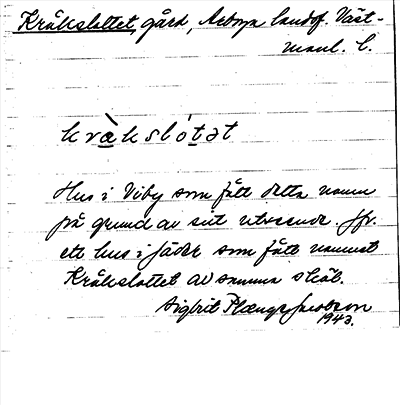 Kråkslottet, gård, Arboga landsf. Väst-
manl. l.
kråkslótət
Hus i Viby som fått detta namn
på grund av sitt utseende. Jfr.
ett hus i Jäder som fått namnet
Kråkslottet av samma skäl.
Sigbrit Plænge Jacobson
1943.